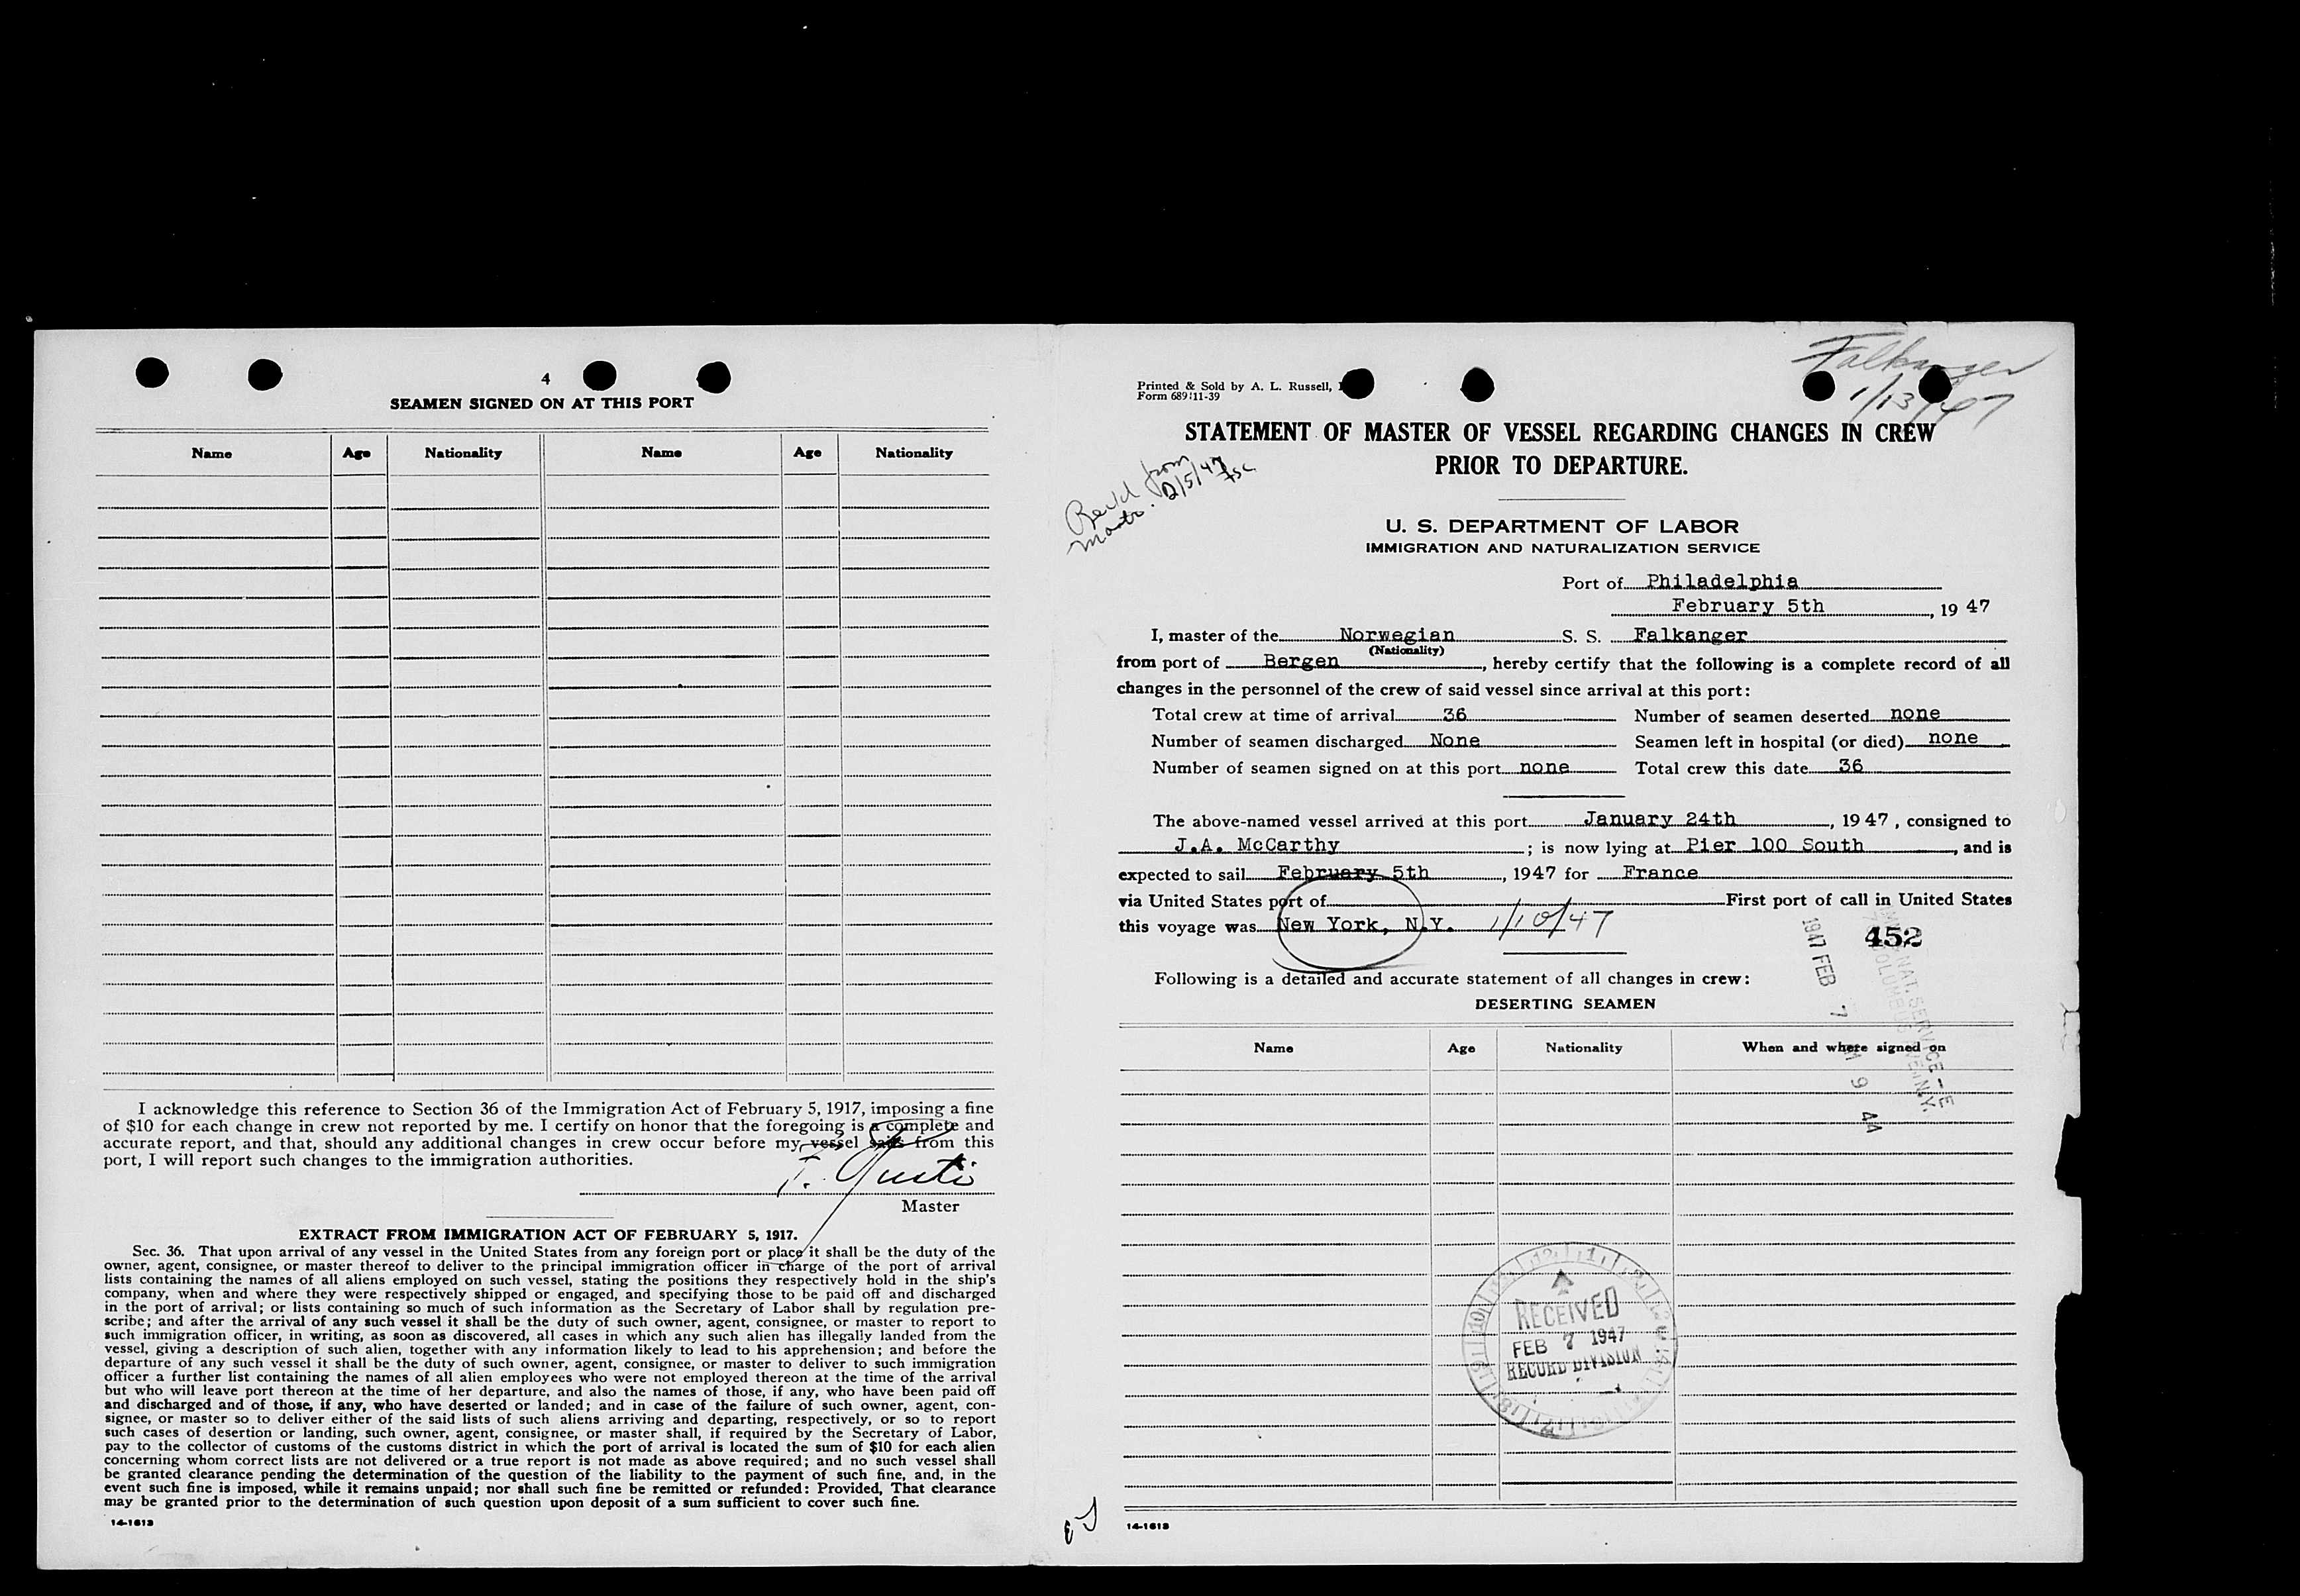 4
SEAMEN SIGNED ON AT THIS PORT
Name Age Nationality Name Age Nationality
I acknowledge this reference to Section 36 of the Immigration Act of February 5, 1917, imposing a fine
of $10 for each change in crew not reported by me. I certify on honor that the foregoing is a complete and
accurate report, and that, should any additional changes in crew occur before my vessel sails from this
port, I will report such changes to the immigration authorities.
Master
EXTRACT FROM IMMIGRATION ACT OF FEBRUARY 5, 1917.
Sec. 36. That upon arrival of any vessel in the United States from any foreign port or place it shall be the duty of the
owner, agent, consignee, or master thereof to deliver to the principal immigration officer in charge of the port of arrival
lists containing the names of all aliens employed on such vessel, stating the positions they respectively hold in the ship's
company, when and where they were respectively shipped or engaged, and specifying those to be paid off and discharged
in the port of arrival; or lists containing so much of such information as the Secretary of Labor shall by regulation pre-
scribe; and after the arrival of any such vessel it shall be the duty of such owner, agent, consignee, or master to report to
such immigration officer, in writing, as soon as discovered, all cases in which any such alien has illegally landed from the
vessel, giving a description of such alien, together with any information likely to lead to his apprehension; and before the
departure of any such vessel it shall be the duty of such owner, agent, consignee, or master to deliver to such immigration
officer a further list containing the names of all alien employees who were not employed thereon at the time of the arrival
but who will leave port thereon at the time of her departure, and also the names of those, if any, who have been paid off
and discharged and of those, if any, who have deserted or landed; and in case of the failure of such owner, agent, con-
signee, or master so to deliver either of the said lists of such aliens arriving and departing, respectively, or so to report
such cases of desertion or landing, such owner, agent, consignee, or master shall, if required by the Secretary of Labor,
pay to the collector of customs of the customs district in which the port of arrival is located the sum of $10 for each alien
concerning whom correct lists are not delivered or a true report is not made as above required; and no such vessel shall
be granted clearance pending the determination of the question of the liability to the payment of such fine, and, in the
event such fine is imposed, while it remains unpaid; nor shall such fine be remitted or refunded: Provided, That clearance
may be granted prior to the determination of such question upon deposit of a sum sufficient to cover such fine.
14-1613
Falkanger
1/13/47
Printed & Sold by A. L. Russell,
Form 689:11-39
STATEMENT OF MASTER OF VESSEL REGARDING CHANGES IN CREW
PRIOR TO DEPARTURE.
Recd from
2/5/47
U. S. DEPARTMENT OF LABOR
IMMIGRATION AND NATURALIZATION SERVICE
Port of Philadelphia
February 5th, 19 47
I, master of the Norwegian S. S. Falkanger
(Nationality)
from port of Bergen, hereby certify that the following is a complete record of all
changes in the personnel of the crew of said vessel since arrival at this port:
Total crew at time of arrival 36 Number of seamen deserted none
Number of seamen discharged None Seamen left in hospital (or died) none
Number of seamen signed on at this port none Total crew this date 36
The above-named vessel arrived at this port January 24th, 19 47, consigned to
J.A. McCarthy; is now lying at Pier 100 South, and is
expected to sail February 5th, 1947 for France
via United States port of First port of call in United States
this voyage was New York, N.Y. 1/10/47
452
1947 FEB 7
Following is a detailed and accurate statement of all changes in crew:
DESERTING SEAMEN
Name Age Nationality When and where signed on
RECEIVED
FEB 7 1947
RECORD DIVISION
14-1613